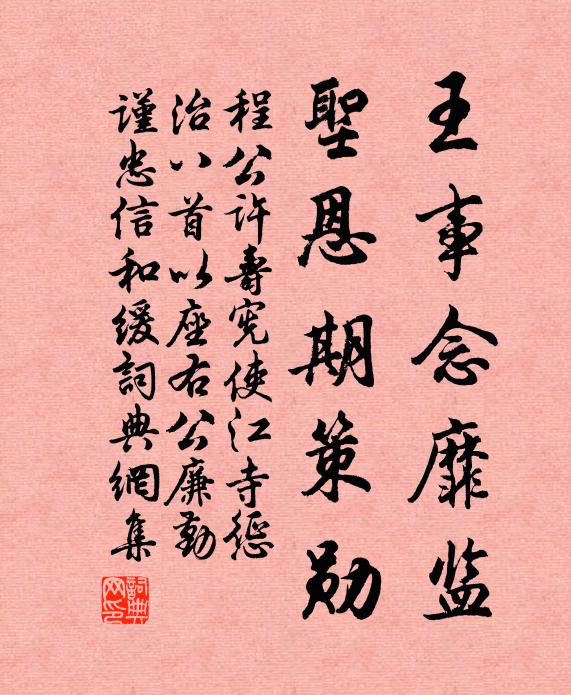 王事念靡监
聖恩期策勋
程公许壽宪使江寺惩
治八首以座右公廉勤
謹忠信和緩詞典網集
詞典
网印